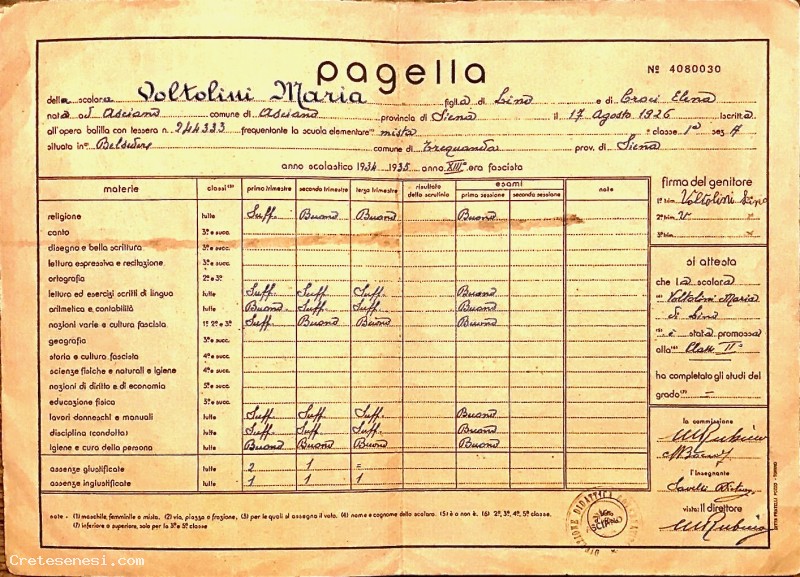 pagella
Nº 4080030
della scolara Voltolini Maria figlia di Lino e di Croci Elena
nata ad Asciano comune di Asciano provincia di Siena il 17 Agosto 1926 Iscritta
all'opera balilla con tessera n. 244333 frequentante la scuola elementare mista classe 1ª sez. A
situata in Belsedere comune di Trequanda prov. di Siena
anno scolastico 1934 1935 anno XIIIº era fascista
materie classi primo trimestre secondo trimestre terzo trimestre risultato dello scrutinio esami prima sessione seconda sessione note
religione tutte Suff. Buono Buono Buono
canto 3ª e succ.
disegno e bella scrittura 3ª e succ.
lettura espressiva e recitazione 3ª e succ.
ortografia 2ª e 3ª
lettura ed esercizi scritti di lingua tutte Suff. Suff. Suff. Buono
aritmetica e contabilità tutte Buono Suff. Suff. Buono
nozioni varie e cultura fascista 1ª 2ª e 3ª Suff. Buono Buono Buono
geografia 3ª e succ.
storia e cultura fascista 4ª e succ.
scienze fisiche e naturali e igiene 4ª e succ.
nozioni di diritto e di economia 5ª e succ.
educazione fisica 3ª e succ.
lavori donneschi e manuali tutte Suff. Suff. Suff. Buono
disciplina (condotta) tutte Suff. Suff. Suff. Buono
igiene e cura della persona tutte Buono Buono Buono Buono
assenze giustificate tutte 2 1 =
assenze ingiustificate tutte 1 1
note - (1) maschile, femminile o mista. (2) via, piazza o frazione, (3) per le quali si assegna il voto. (4) nome e cognome dello scolaro. (5) è o non è. (6) 2ª, 3ª, 4ª, 5ª classe.
(7) inferiore o superiore, solo per la 3ª e 5ª classe
firma del genitore
1º trim. Voltolini Lino
2º trim. V " "
3º trim. " "
si attesta
che la scolara
Voltolini Maria
di Lino
è stata promossa
alla Classe IIª
ha completato gli studi del
grado (7) =
la commissione
l'insegnante
visto: il direttore
DIREZIONE DIDATTICA
Cretesenesi.com